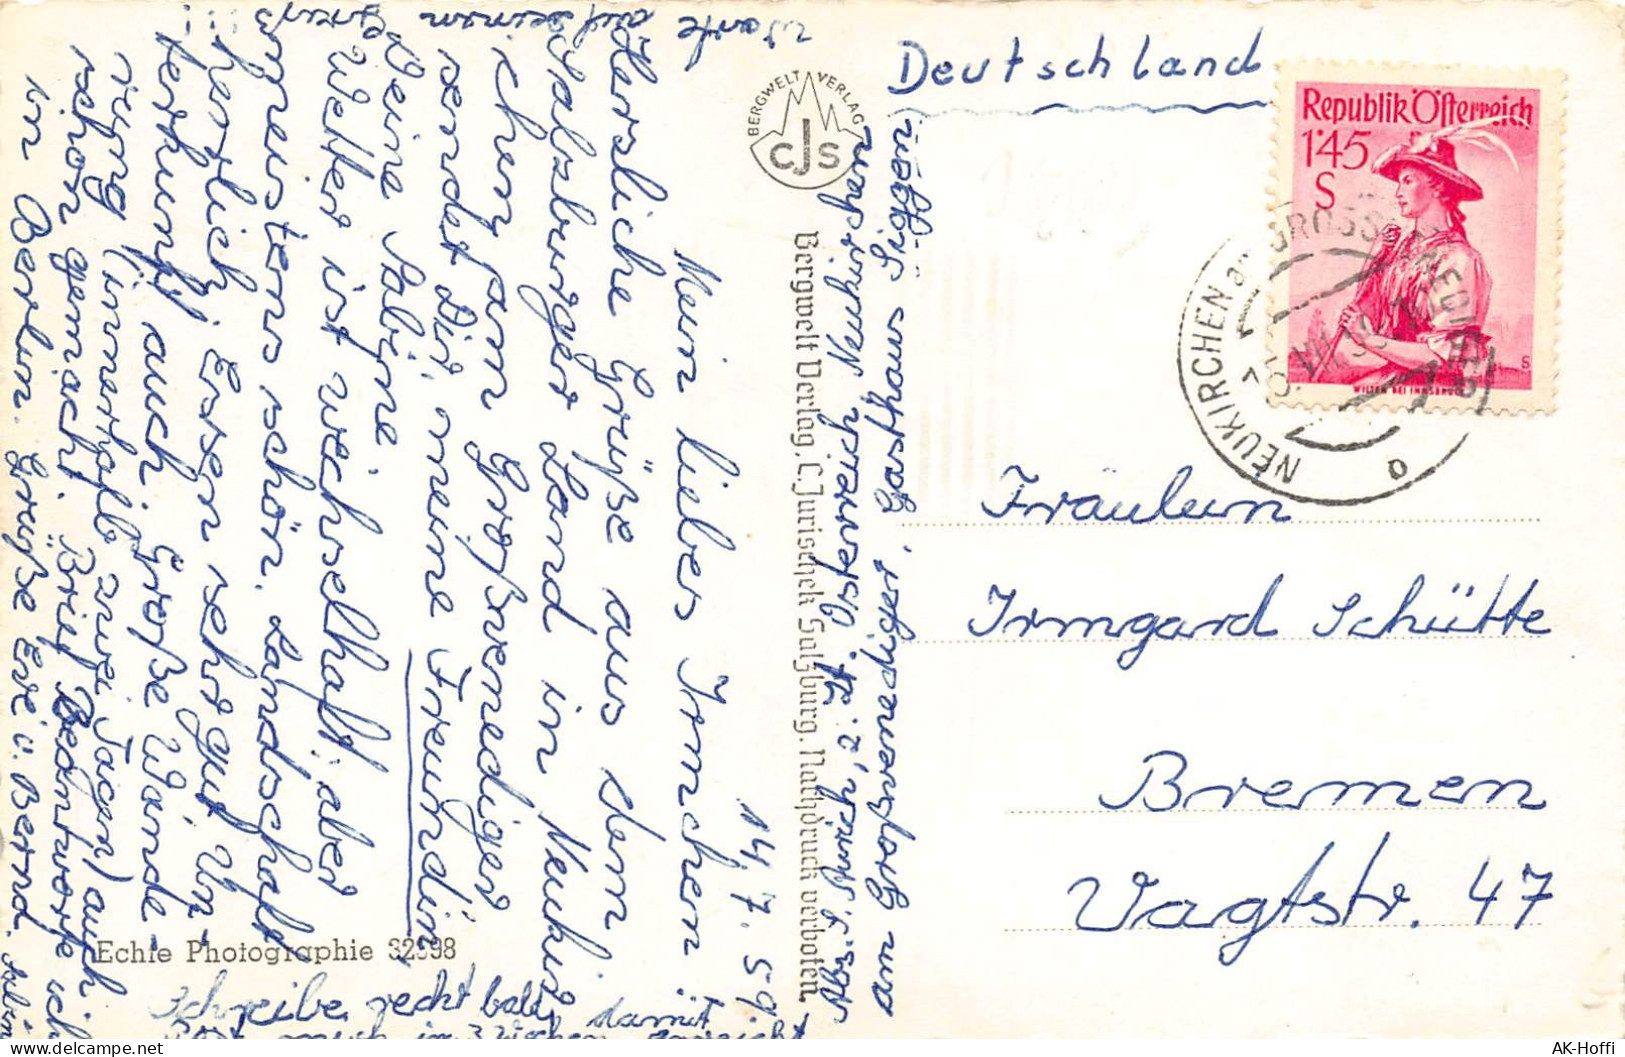 14.7.59.
Mein liebes Irmchen!!
Herzliche Grüße aus dem
Salzburger Land in Neukir
ichen am Großvenediger
sendet Dir, meine Freundin,
Deine Sabine.
Wetter ist wechselhaft, aber
meistens schön. Landschaft
herrlich; Essen sehr gut. Un-
terkunft auch. Große Wande-
rung (innerhalb zwei Tagen) auch
schon gemacht. Brief beantworte ich
in Berlin. Grüße Evi u. Bernd.
Schreibe recht bald, damit
mich in 3 Wochen
Warte auf
Gruß
BERGWELT VERLAG
CJS
Bergwelt Verlag, C. Jurischek Salzburg. Nachdruck verboten.
Echte Photographie 32598
Österreich, Neukirchen
am Großvenediger, Gasthaus Siggen.
Deutschland
Republik Österreich
1'45
S
WILTEN BEI INNSBRUCK
NEUKIRCHEN a. GROSSVENEDIGER
Fräulein
Irmgard Schütte
Bremen
Vagtstr. 47
AK-Hoffi